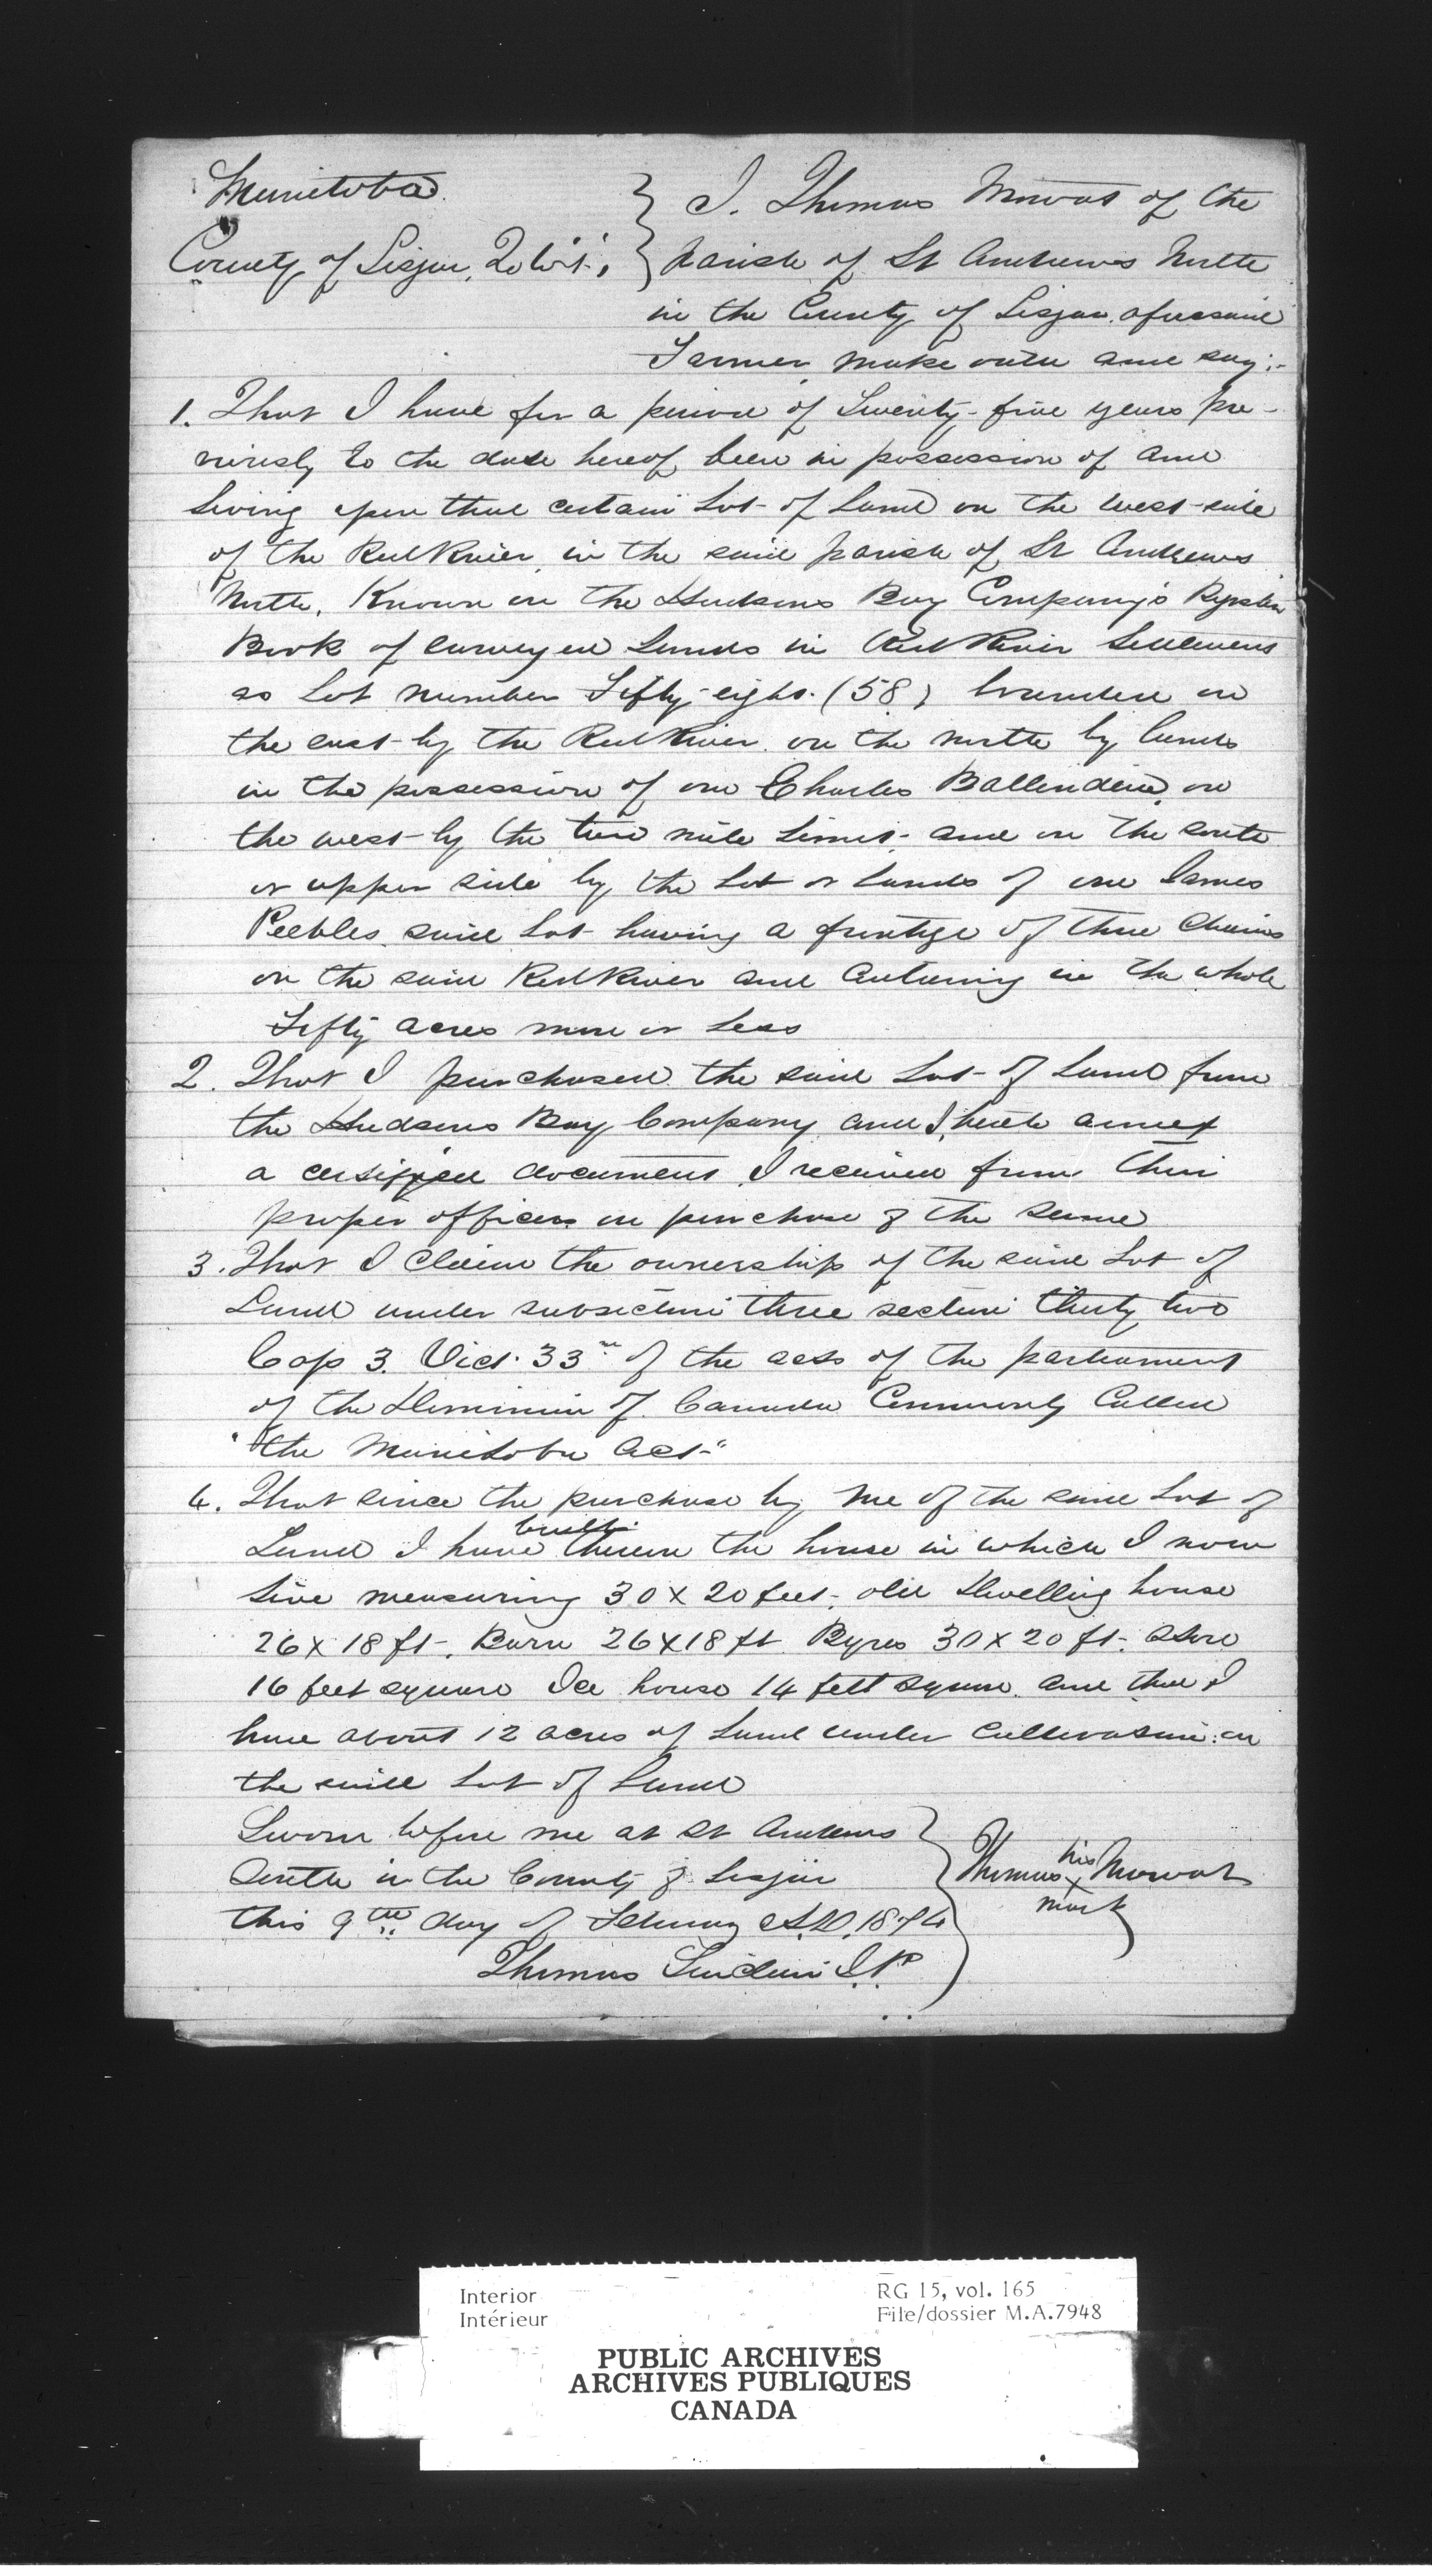 Manitoba
County of Lisgar, To Wit:
I, Thomas Mowat of the
parish of St Andrews North
in the County of Lisgar aforesaid
Farmer make oath and say:-
1. That I have for a period of Twenty-five years pre-
viously to the date hereof been in possession of and
living upon that certain Lot of Land on the west side
of the Red River in the said parish of St Andrews
North, Known in the Hudsons Bay Company's Register
Book of surveyed Lands in Red River Settlement
as Lot number Fifty-eight (58) bounded on
the east by the Red River on the north by lands
in the possession of one Charles Ballendine on
the west by the two mile limit and on the south
or upper side by the Lot or lands of one James
Peebles said Lot having a frontage of three Chains
on the said Red River and Containing in the whole
Fifty acres more or less
2. That I purchased the said Lot of Land from
the Hudsons Bay Company and I hereto annex
a document I received from their
proper officers on purchase of the same
3. That I claim the ownership of the said Lot of
Land under subsection three section thirty two
Cap 3. Vict. 33rd of the acts of the parliament
of the Dominion of Canada Commonly Called
"the Manitoba Act"
4. That since the purchase by me of the said Lot of
Land I have built thereon the house in which I now
live measuring 30 x 20 feet, old Dwelling house
26 x 18 ft. Barn 26 x 18 ft Byres 30 x 20 ft. Store
16 feet square Ice house 14 feet square and that I
have about 12 acres of Land under cultivation on
the said Lot of Land
Sworn before me at St Andrews
South in the County of Lisgar
this 9th day of February A.D. 1874
Thomas Sinclair J.P.
Thomas his x mark Mowat
Interior
Intérieur
RG 15, vol. 165
File/dossier M.A.7948
PUBLIC ARCHIVES
ARCHIVES PUBLIQUES
CANADA